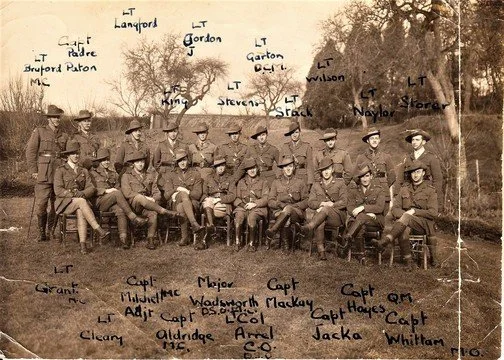 LT
Langford
LT
Gordon
J
Capt
Padre
LT
Garton
D.C.M.
LT
Bruford
MC
Paton
LT
Wilson
LT
King
LT
Stevens
LT
Stack
LT
Naylor
LT
Storer
LT
Grant
MC
Capt
Mitchell MC
Adjt
Major
Wadsworth
Capt
Mackay
Capt
Hayes
QM
LT
Cleary
Capt
Aldridge
M.C.
LCol
C.O.
Capt
Jacka
Capt
Whittam
M.O.